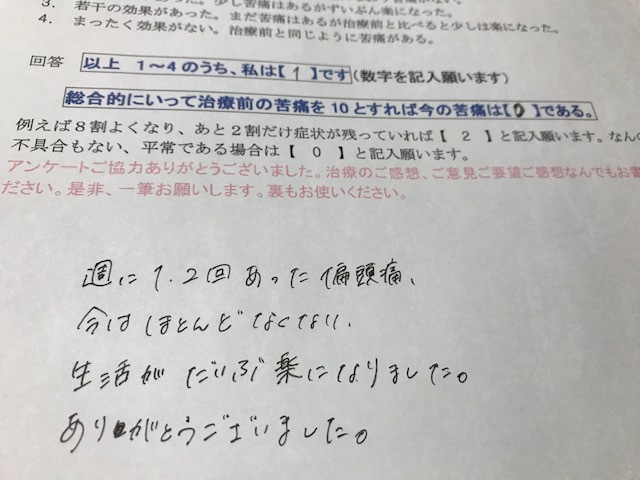 3. 若干の効果があった。まだ苦痛はあるが治療前と比べると少しは楽になった。
4. まったく効果がない。治療前と同じように苦痛がある。
回答 以上 1～4のうち、私は【 1 】です(数字を記入願います)
総合的にいって治療前の苦痛を10とすれば今の苦痛は【 0 】である。
例えば8割よくなり、あと2割だけ症状が残っていれば【 2 】と記入願います。なんの
不具合もない、平常である場合は【 0 】と記入願います。
アンケートご協力ありがとうございました。治療のご感想、ご意見ご要望ご感想なんでもお書
ださい。是非、一筆お願いします。裏もお使いください。
週に1.2回あった偏頭痛、
今はほとんどなくなり、
生活がだいぶ楽になりました。
ありがとうございました。